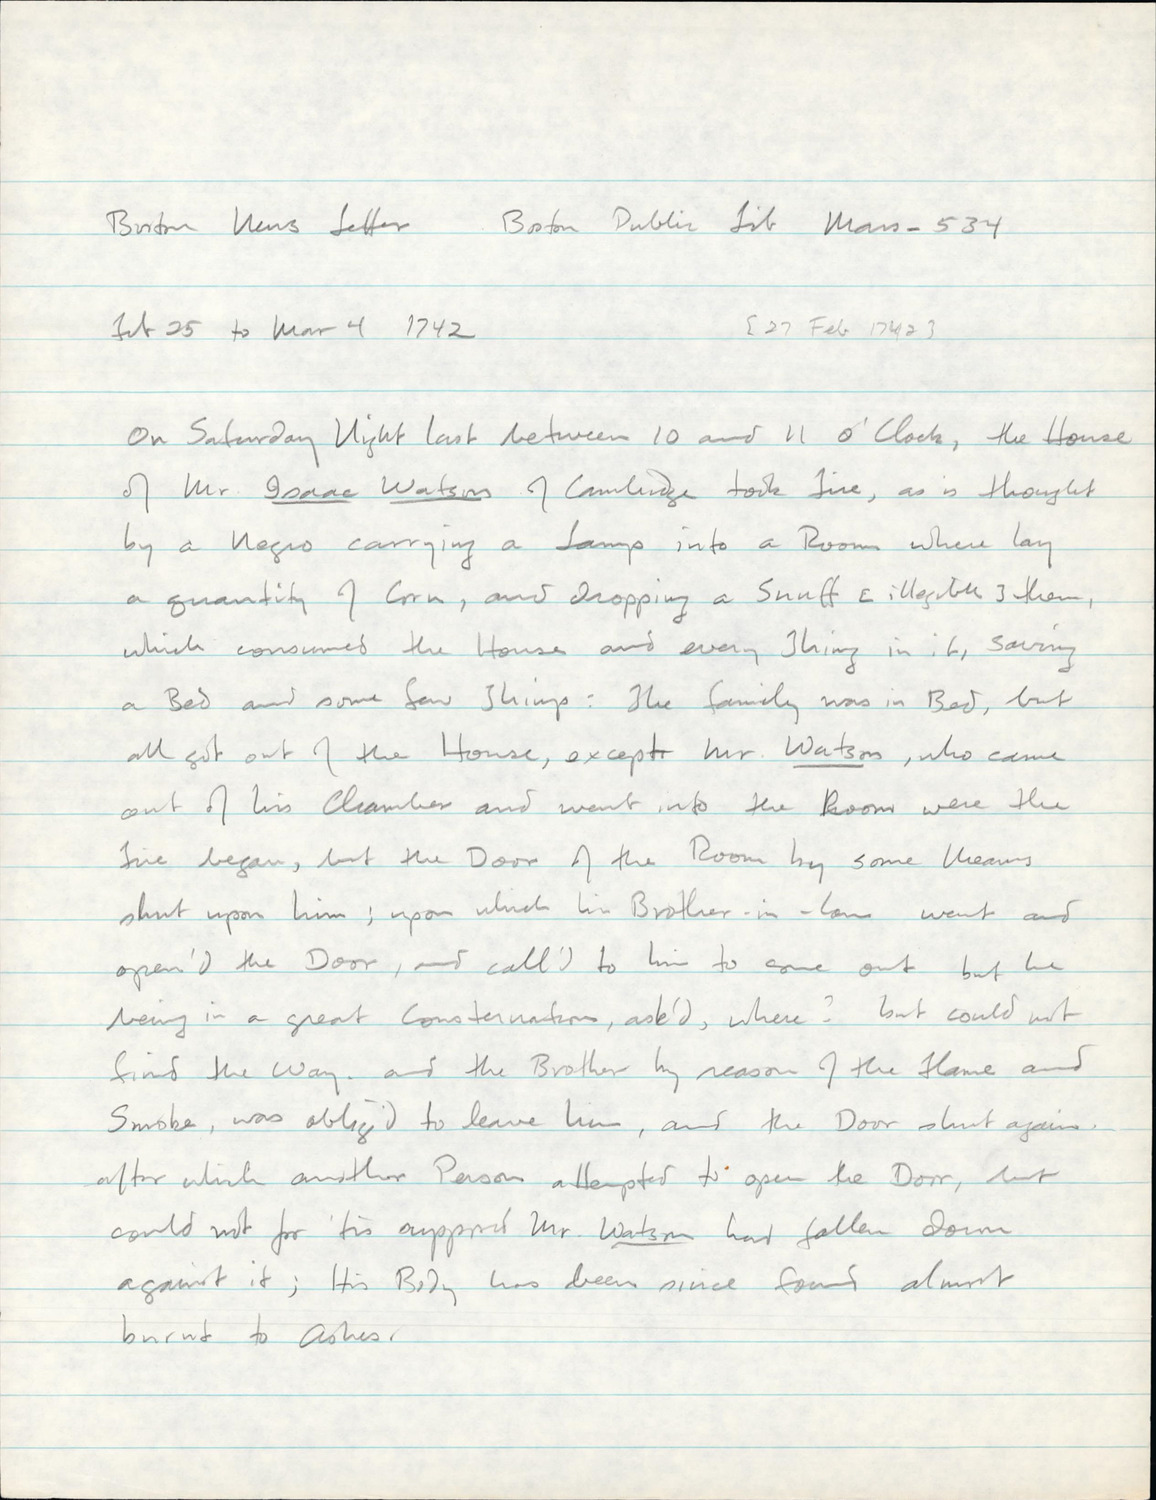 Boston News Letter Boston Public Lib Mans-534
Feb 25 to Mar 4 1742 [27 Feb 1742]
On Saturday Night last between 10 and 11 o'Clock, the House
of Mr. Isaac Watson of Cambridge took Fire, as is thought
by a Negro carrying a Lamp into a Room where lay
a quantity of Corn, and dropping a Snuff [illegible] them,
which consumed the House and every Thing in it, saving
a Bed and some few Things: The family was in Bed, but
all got out of the House, except Mr. Watson, who came
out of his Chamber and went into the Room were the
Fire began, but the Door of the Room by some Means
shut upon him; upon which his Brother-in-law went and
open'd the Door, and call'd to him to come out but he
being in a great Consternation, ask'd, where? but could not
find the Way. and the Brother by reason of the Flame and
Smoke, was oblig'd to leave him, and the Door shut again.
after which another Person attempted to open the Door, but
could not for 'tis suppos'd Mr. Watson had fallen down
against it; His Body has been since found almost
burnt to Ashes.